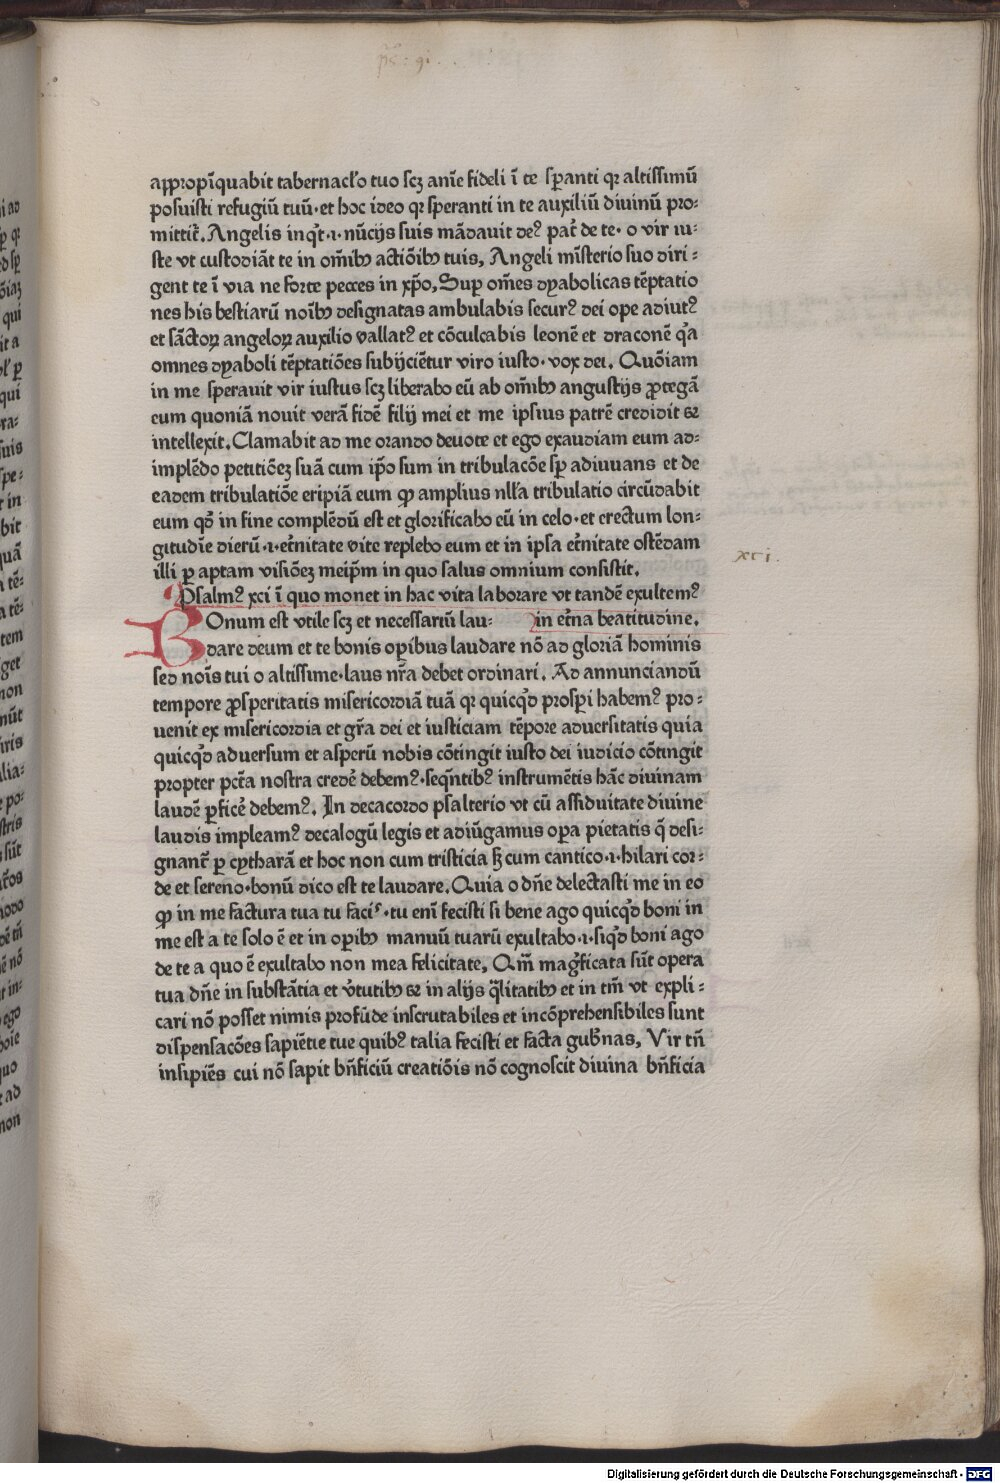 ps. 91
appropĩquabit tabernacĺo tuo scʒ anĩe fideli ĩ te sꝑanti qr altissimũ
posuisti refugiũ tuũ·et hoc ideo qr sperantí in te auxiliũ diuinũ pro⸗
mittit̃. Angelis inq̃t·ı·nũcijs suis mãdauit deꝰ pat̃ de te· o vir iu⸗
ste vt custodiãt te in om̃ibꝫ actiõibꝫ tuis, Angeli mĩsterio suo diri⸗
gent te ĩ via ne forte pecces in xp̃o, Suꝑ om̃es dyabolicas tẽptatio
nes his bestiarũ noĩbꝫ designatas ambulabis securꝰ dei ope adiutꝰ
et sãctoꝝ angeloꝝ auxilio vallatꝰ et cõculcabis leonẽ et draconẽ q̃a
omnes dyaboli tẽptatiões subijciẽtur viro iusto· vox dei. Quõiam
in me sperauit vir iustus scʒ liberabo eũ ab om̃ibꝫ angustijs ꝓtegã
eum quoniã nouit verã fidẽ filij mei et me ipsius patrẽ credidit ⁊
intellexit. Clamabit ad me orando deuote et ego exaudiam eum ad⸗
implẽdo petitiõeʒ suã cum ip̃o sum in tribulacõe sꝑ adiuuans et de
eadem tribulatiõe eripiã eum ꝙ amplius nll̃a tribulatio circũdabit
eum qd̃ in fine complẽdũ est et glorificabo eũ in celo·et erectum lon⸗
gitudĩe dierũ·ı·et̃nitate vite replebo eum et in ipsa et̃nitate ostẽdam
illi ꝑ aptam visiõeʒ meip̃m in quo salus omnium consistit.
xci.
Psalmꝰ xci ĩ quo monet in hac vita laborare vt tandẽ exultemꝰ
Bonum est vtile scʒ et necessariũ lau⸗ in et̃na beatitudine.
dare deum et te bonis oꝑibus laudare nõ ad gloriã hominis
sed noĩs tui o altissime·laus nr̃a debet ordinari. Ad annunciandũ
tempore ꝓsperitatis misericordiã tuã qr quicqd̃ prosꝑi habemꝰ pro⸗
uenit ex misericordia et gr̃a dei et iusticiam tẽpore aduersitatis quia
quicqd̃ aduersum et asperũ nobis cõtingit iusto dei iudicio cõtingit
propter pct̃a nostra creder̃ debemꝰ·seqñtibꝰ instrumẽtis hãc diuinam
laudẽ ꝑficer̃ debemꝰ. In decacordo psalterio vt cũ assiduitate diuine
laudis impleamꝰ decalogũ legis et adiũgamus oꝑa pietatis q̃ desi⸗
gnant̃ ꝑ cytharã et hoc non cum tristicia sꝫ cum cantico·ı·hilari cor⸗
de et sereno·bonũ dico est te laudare. Quia o dñe delectasti me in eo
ꝙ in me factura tua tu facis·tu enĩ fecisti si bene ago quicqd̃ boni in
me est a te solo ẽ et in oꝑibꝫ manuũ tuarũ exultabo·ı·siqd̃ boni ago
de te a quo ẽ exultabo non mea felicitate, Qm̃ mag̃ficata sũt opera
tua dñe in substãtia et ṽtutibꝫ ⁊ in alijs q̃litatibꝫ et in tm̃ vt expli⸗
cari nõ posset nimis profũde inscrutabiles et incõprehensibiles sunt
dispensacões sapiẽtie tue quibꝰ talia fecisti et facta gub̃nas, Vir tñ
insipiẽs cui nõ sapit bñficiũ creatiõis nõ cognoscit diuina bñficia
Digitalisierung gefördert durch die Deutsche Forschungsgemeinschaft - DFG